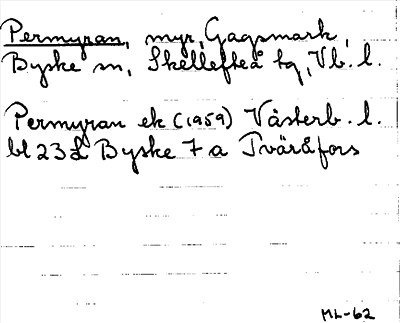 Permyran, myr, Gagsmark,
Byske sn, Skellefteå tg, Vb. l.
Permyran ek (1959) Västerb. l.
bl 23 L Byske 7 a Tväråfors
ML-62